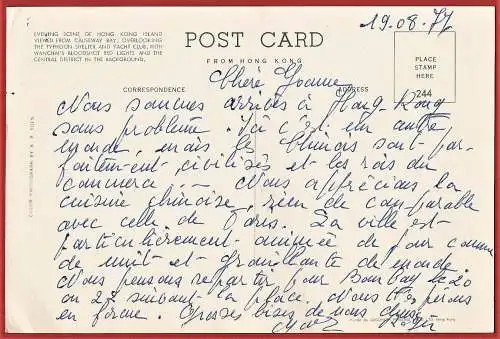 19.08.77
EVENING SCENE OF HONG KONG ISLAND
VIEWED FROM CAUSEWAY BAY, OVERLOOKING
THE TYPHOON SHELTER AND YACHT CLUB, WITH
WANCHAI'S BLOODSHOT RED LIGHTS AND THE
CENTRAL DISTRICT IN THE BACKGROUND.
POST CARD
FROM HONG KONG
PLACE
STAMP
HERE
244
CORRESPONDENCE
ADDRESS
Chère Yvonne
Nous sommes arrivés à Hong-Kong
sans problème. Ici c'est un autre
monde, mais les Chinois sont par-
faitement civilisés et les rois du
commerce ... Nous apprécions la
cuisine chinoise, rien de comparable
avec celle de Paris. La ville est
particulièrement animée de jour comme
de nuit et grouillante de monde.
Nous pensons repartir pour Bombay le 20
ou 27 suivant la place. Nous espérons
en forme. Grosses bises de nous
COLOR PHOTOGRAPH BY